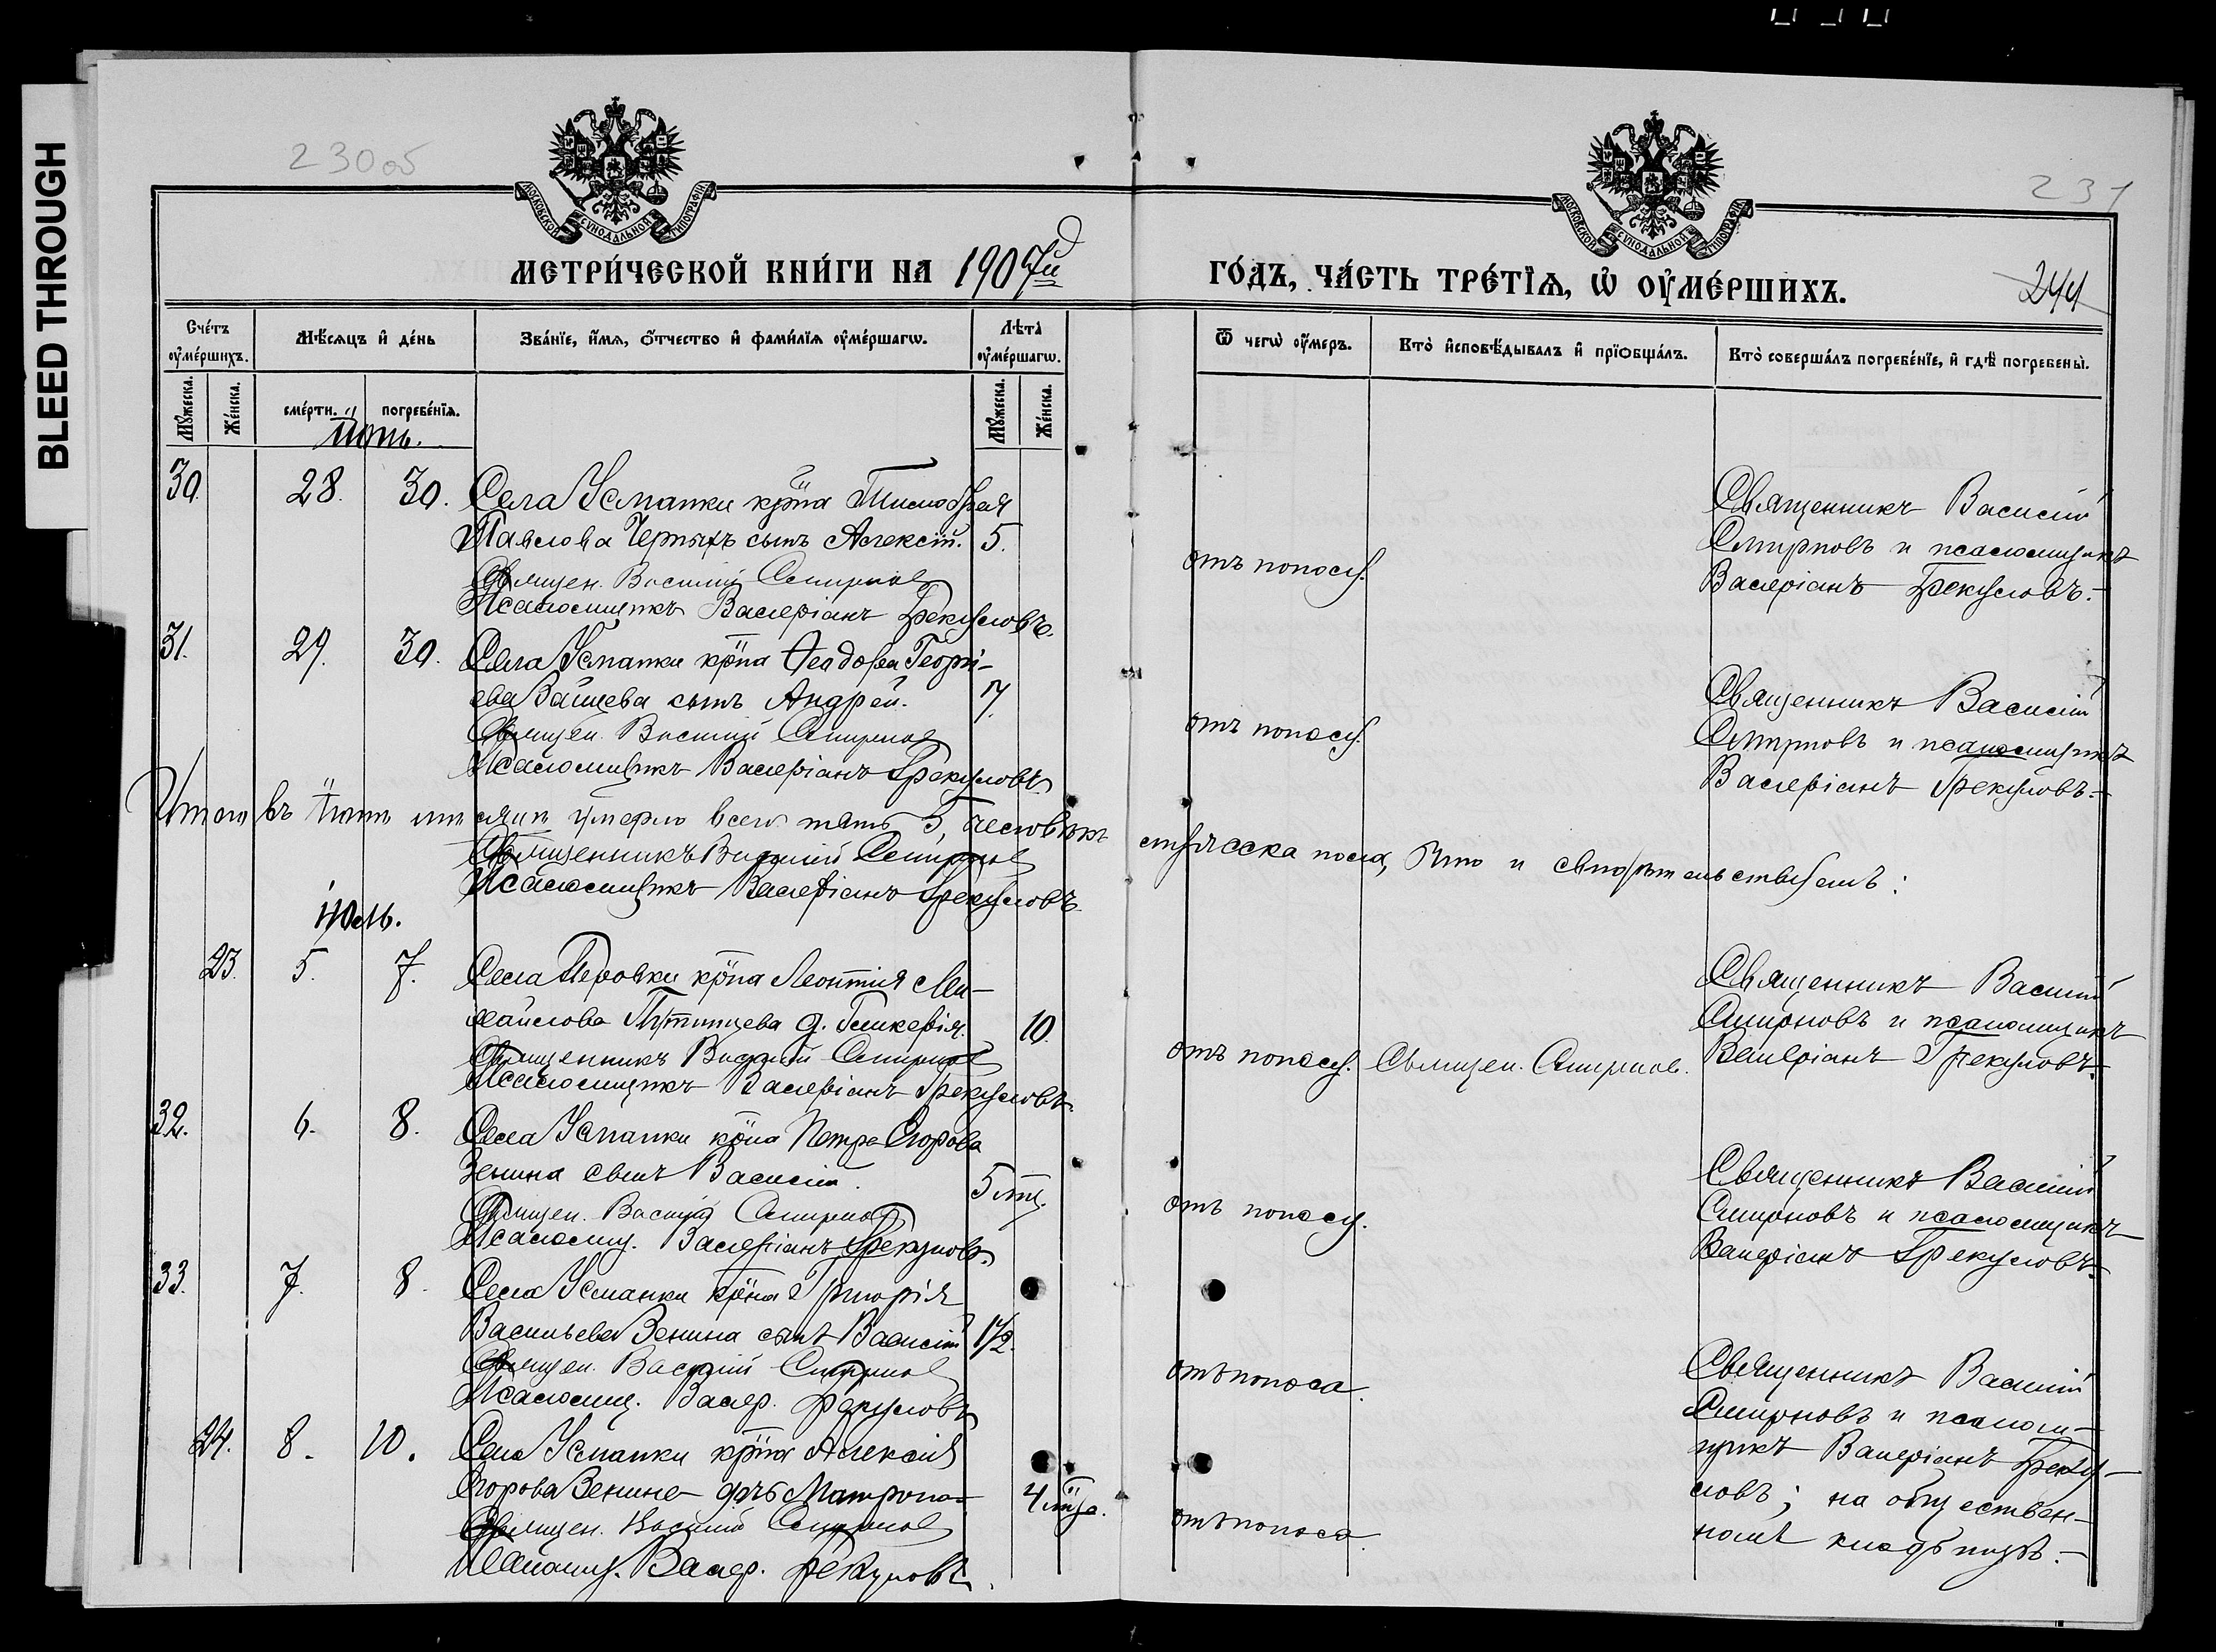 BLEED THROUGH
230об
231
МОСКОВСКОЙ СѴНОДАЛЬНОЙ ТИПОГРАФІИ
МОСКОВСКОЙ СѴНОДАЛЬНОЙ ТИПОГРАФІИ
МЕТРИ́ЧЕСКОЙ КНИ́ГИ НА 1907й
ГО́ДЪ, ЧА́СТЬ ТРЕ́ТІѦ, Ѡ҆ ОУ҆МЕ́РШИХЪ.
244
Сче́тъ оу҆ме́ршихъ.
Мꙋ́жеска.
Же́нска.
Мѣ́сяцъ и҆ де́нь
сме́рти.
погребе́нїя.
Зва́нїе, и҆́мя, ѻ҆́тчество и҆ фами́лїя оу҆ме́ршагѡ.
Лѣ́та оу҆ме́ршагѡ.
Мꙋ́жеска.
Же́нска.
Ѿ чегѡ̀ оу҆́меръ.
Кто̀ и҆сповѣ́дывалъ и҆ прїѻбща́лъ.
Кто̀ соверша́лъ погребе́нїе, и҆ гдѣ̀ погребены̀.
Іюнь.
30. 28. 30. Села Усманки крна Тимофея
Павлова Черныхъ сынъ Алексій. 5.
Священ. Василій Смирнов
Псаломщикъ Валеріанъ Грекуловъ.
отъ поносу.
Священникъ Василій
Смирновъ и псаломщикъ
Валеріанъ Грекуловъ.-
31. 29. 30. Села Усманки крна Ѳеодора Георгі-
ева сынъ Андрей. 7.
Священ. Василій Смирнов
Псаломщикъ Валеріанъ Грекуловъ
отъ поносу.
Священникъ Василій
Смирновъ и псаломщикъ
Валеріанъ Грекуловъ.-
Итого въ Іюнѣ мѣсяцѣ умерло всего пять 5, человѣкъ мужеска пола, Что и свидѣтельствуемъ:
Священникъ Василій Смирнов
Псаломщикъ Валеріанъ Грекуловъ
Іюль.
23. 5. 7. Села Перовки крна Леонтія Ми-
хайлова Путинцева д. Гликерія. 10.
Священникъ Василій Смирнов
Псаломщикъ Валеріанъ Грекуловъ.
отъ поносу. Священ. Смирнов.
Священникъ Василій
Смирновъ и псаломщикъ
Валеріанъ Грекуловъ.-
32. 6. 8. Села Усманки крна Петра Егорова
Зенина сынъ Василій. 5 мц.
Священ. Василій Смирнов
Псаломщ. Валеріанъ Грекуловъ.
отъ поносу.
Священникъ Василій
Смирновъ и псаломщикъ
Валеріанъ Грекуловъ.-
33. 7. 8. Села Усманки крна Григорія
Васильева Зенина сынъ Василій 1½.
Священ. Василій Смирнов
Псаломщ. Валер. Грекуловъ
отъ поноса.
Священникъ Василій
Смирновъ и псалом-
щикъ Валеріанъ Греку-
ловъ; на обществен-
номъ кладбищѣ.-
24. 8. 10. Села Усманки крна Алексія
Егорова Зенина дчь Матрона- 4 мца.
Священ. Василій Смирнов
Псаломщ. Валер. Грекуловъ.
отъ поноса.